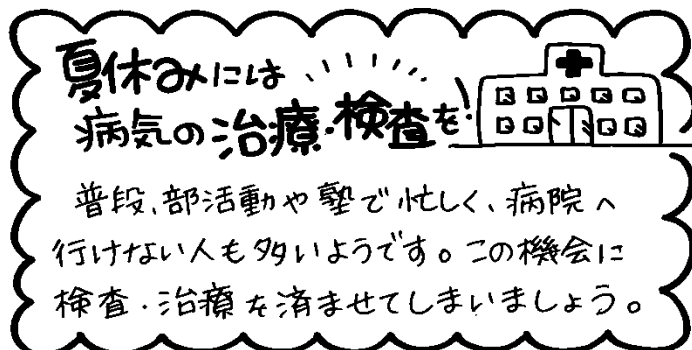 夏休みには
病気の治療・検査を!
普段、部活動や塾で忙しく、病院へ
行けない人も多いようです。この機会に
検査・治療を済ませてしまいましょう。